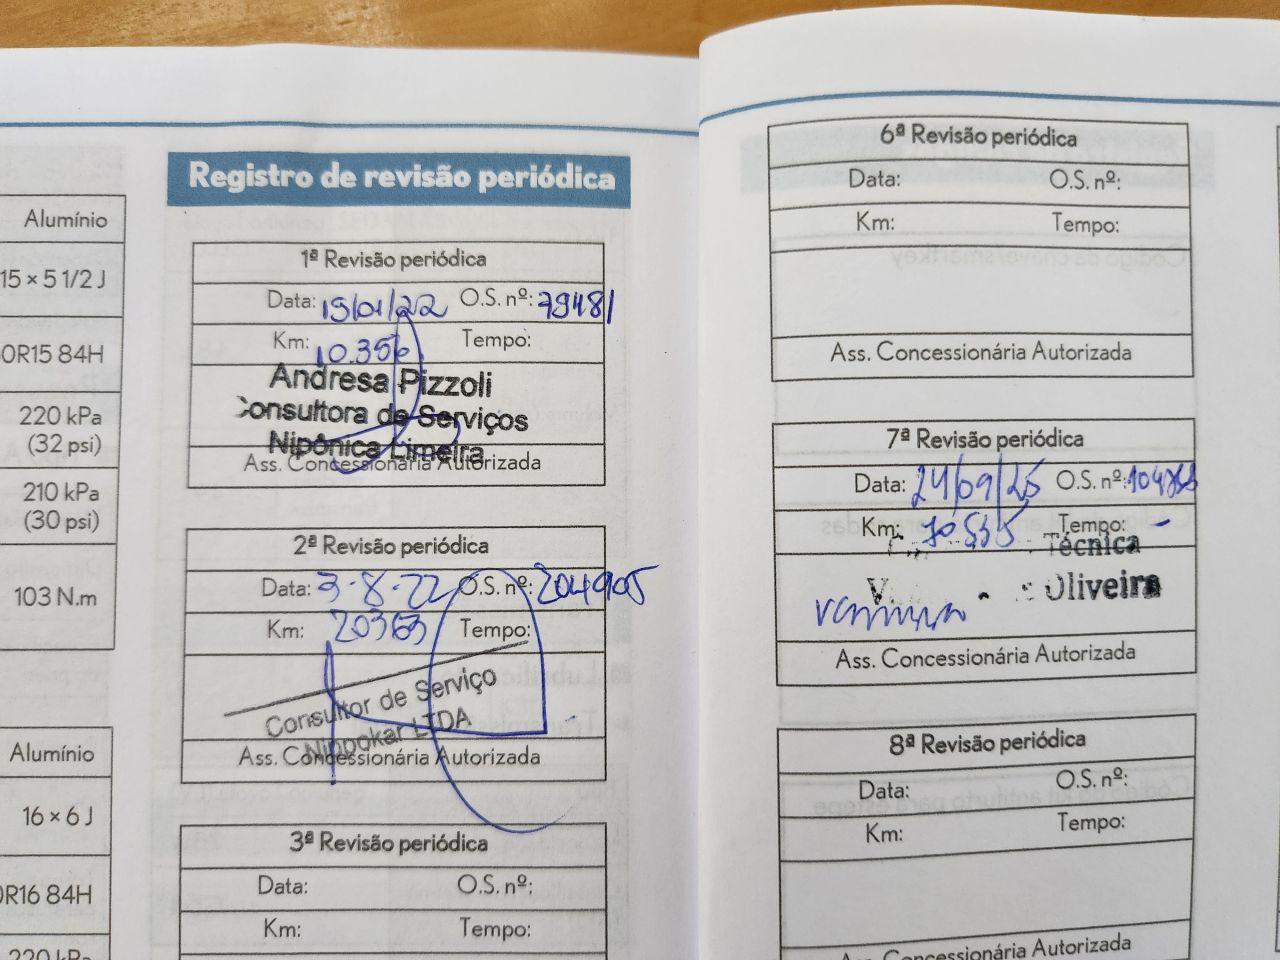 Alumínio
15 x 5 1/2 J
0R15 84H
220 kPa
(32 psi)
210 kPa
(30 psi)
103 N.m
Alumínio
16 x 6 J
0R16 84H
220 kPa
Registro de revisão periódica
1ª Revisão periódica
Data: 19/01/22 O.S. nº: 79481
Km: 10.356 Tempo:
Andresa Pizzoli
Consultora de Serviços
Nipônica Limeira
Ass. Concessionária Autorizada
2ª Revisão periódica
Data: 3-8-22 O.S. nº: 204905
Km: 20363 Tempo:
Consultor de Serviço
Nippokar LTDA
Ass. Concessionária Autorizada
3ª Revisão periódica
Data: O.S. nº:
Km: Tempo:
6ª Revisão periódica
Data: O.S. nº:
Km: Tempo:
Ass. Concessionária Autorizada
7ª Revisão periódica
Data: 24/09/25 O.S. nº:
Km: 70535 Tempo: -
Técnica
Oliveira
Ass. Concessionária Autorizada
8ª Revisão periódica
Data: O.S. nº:
Km: Tempo:
Ass. Concessionária Autorizada